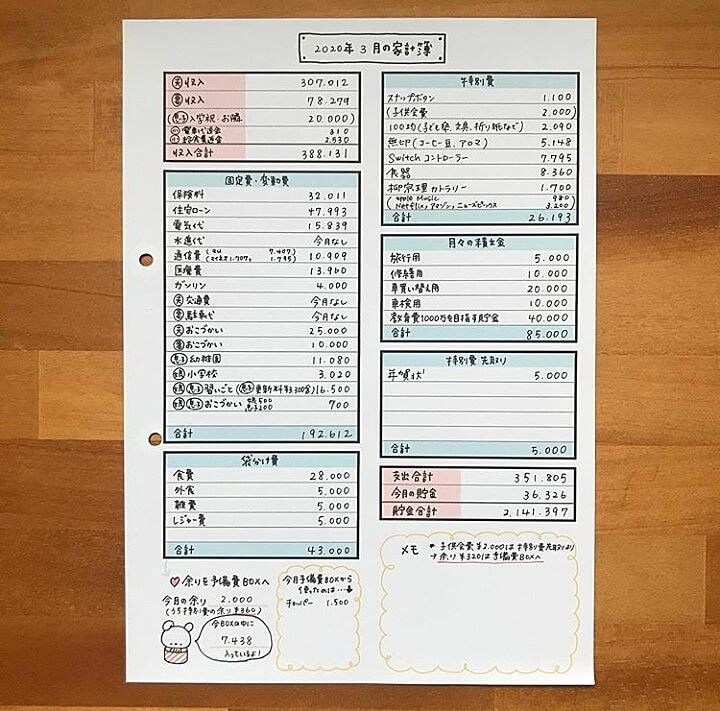 2020年 3月の家計簿
夫 収入 307.012
妻 収入 78.279
(息子 入学祝.お隣 20.000)
電車代返金 310
給食費返金 2.530
収入合計 388.131
固定費・変動費
保険料 32.011
住宅ローン 47.993
電気代 15.839
水道代 今月なし
通信費 10.909
医療費 13.960
ガソリン 4.000
夫 交通費 今月なし
妻 駐車代 今月なし
夫 おこづかい 25.000
妻 おこづかい 10.000
息子 幼稚園 11.080
娘 小学校 3.020
娘 息子 習いごと (息子 更新料¥3.300含) 16.500
娘 息子 おこづかい 娘500 息子200 700
合計 192.612
袋分け費
食費 28.000
外食 5.000
雑費 5.000
レジャー費 5.000
合計 43.000
♡余りを予備費BOXへ
今月の余り 2.000
(うち特別費の余り¥360)
今BOXの中に
7.438
入っているよ!
今月予備費BOXから
使ったのは…
チャッパー 1.500
特別費
スナップボタン 1.100
(子供会費 2.000)
100均(子ども祭、文具、折り紙など) 2.090
無印(コーヒー豆、アロマ) 5.148
Switchコントローラー 7.795
食器 8.360
柳宗理カトラリー 1.700
(apple Music 980
Netflix,アマゾン,ニュースピックス 3.200)
合計 26.193
月々の積立金
旅行用 5.000
修繕用 10.000
車買い替え用 20.000
車検用 10.000
教育費1000万を目指す貯金 40.000
合計 85.000
特別費 先取り
年賀状 5.000
合計 5.000
支出合計 351.805
今月の貯金 36.326
貯金合計 2.141.397
メモ
子供会費¥2.000は特別費先取より
→余り¥320は予備費BOXへ